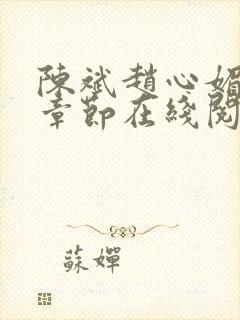 陳斌趙心媚
章節在綫閱
蘇嬋